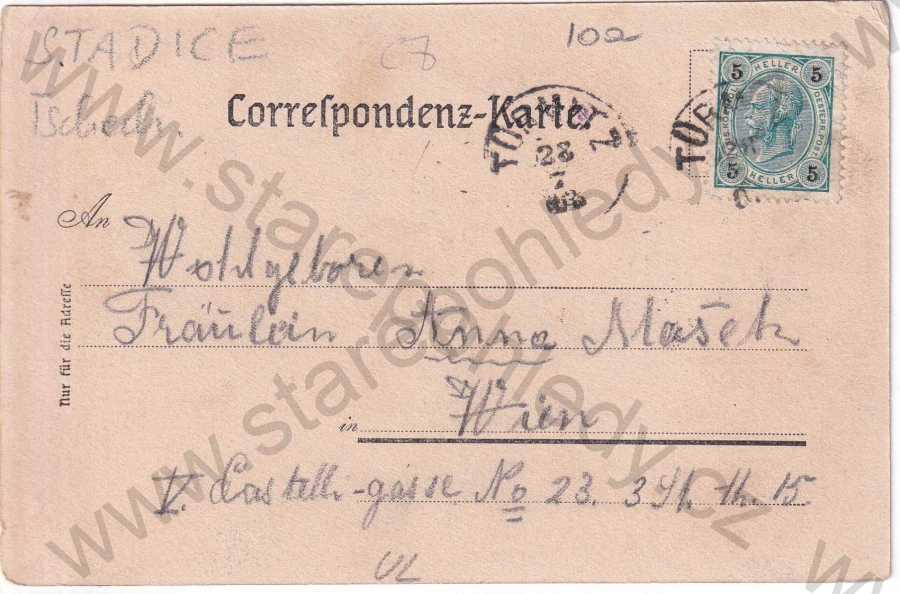 STADICE
C8
102
Correspondenz-Karte.
TÜRMITZ
28
TÜR
5 HELLER 5
5 HELLER 5
An
Wohlgeboren
Fräulein Anna Mašek
in Wien
V. Castelli-gasse No 23. 3 St. th. 15
Nur für die Adresse
UL
www.starepohledy.cz